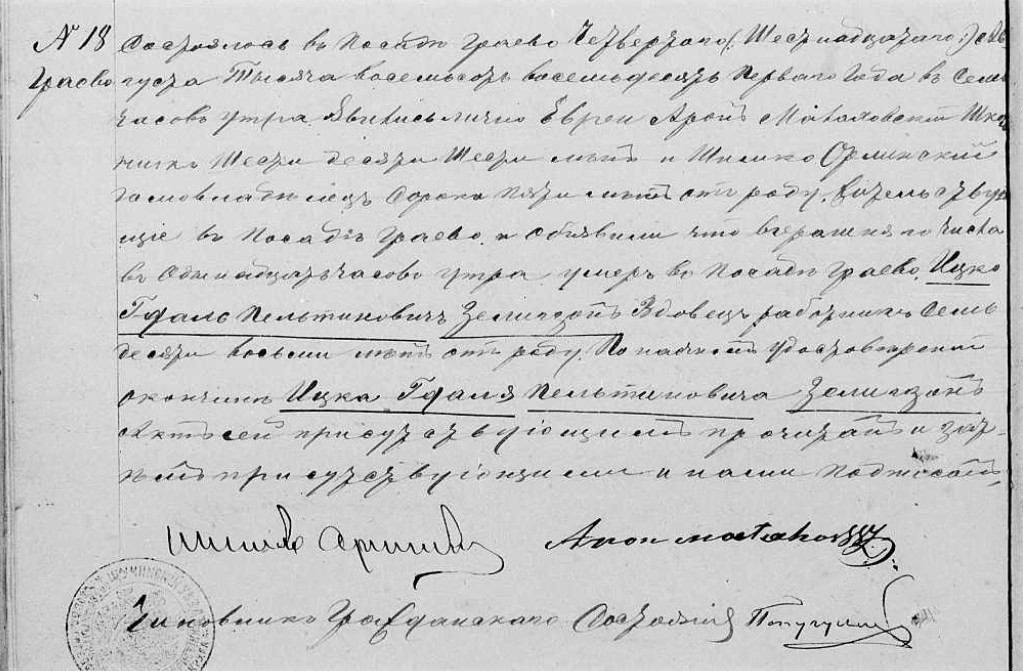 № 18 Состоялось въ Посадѣ Граево Четвертаго (Шестнадцатаго) Ав
Граево густа Тысяча восемьсотъ восемьдесятъ перваго года въ Семь
часовъ утра Явились лично Евреи Аронъ Матаховскій Шко
никъ Шестидесяти Шести лѣтъ и Шлиомко Орлинскій
домовладѣлецъ Сорока пяти лѣтъ отъ роду, жительствую
щіе въ Посадѣ Граево, и объявили что вчерашняго числа
въ Одинадцать часовъ утра умеръ въ Посадѣ Граево, Ицко
Гдаль Пельтиновичъ Зелигзонъ Вдовецъ работникъ Семь
десяти восьми лѣтъ отъ роду, По наячномъ удостовѣреніи о
кончинѣ Ицка Гдаля Пельтиновича Зелигзонъ
Актъ сей присутствующимъ прочитанъ и за
нѣмъ присутствующими и нами подписанъ,
Aron Matachowsky
Чиновникъ Гражданскаго Состоянія